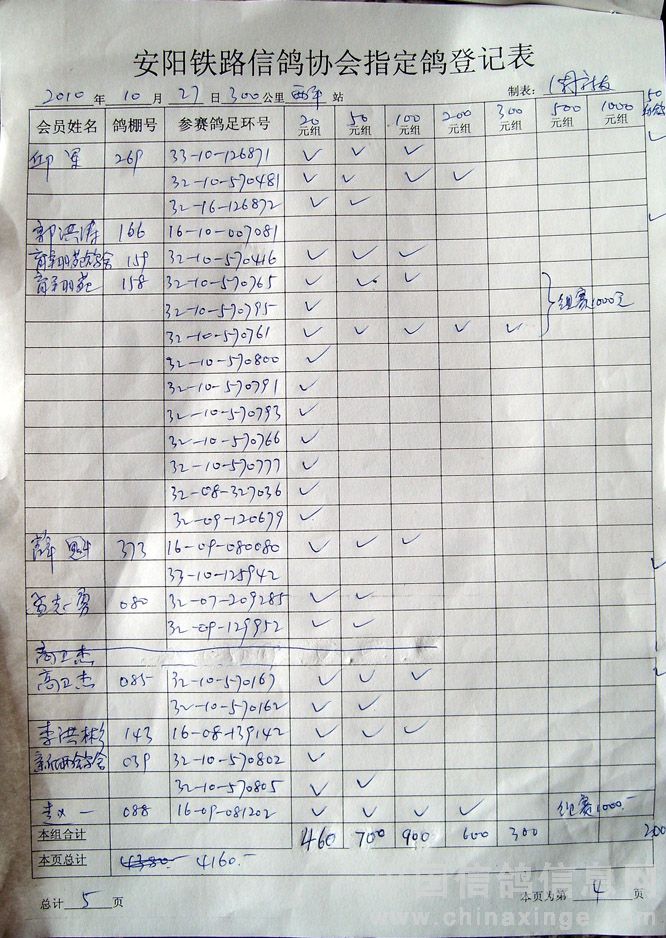 安阳铁路信鸽协会指定鸽登记表
2010 年 10 月 27 日 300 公里 西平 站 制表：
会员姓名 鸽棚号 参赛鸽足环号 20元组 50元组 100元组 200元组 300元组 500元组 1000元组 50
军 269 33-10-126871 ✓ ✓ ✓ ✓
32-10-570481 ✓ ✓ ✓ ✓
32-16-126872 ✓ ✓
郭洪涛 166 16-10-007081 ✓
159 32-10-570416 ✓ ✓ ✓
158 32-10-570765 ✓ ✓ ✓
32-10-570795 ✓ 组赛1000元
32-10-570761 ✓ ✓ ✓ ✓ ✓
32-10-570800 ✓
32-10-570791 ✓
32-10-570793 ✓
32-10-570766 ✓
32-10-570777 ✓
32-08-327036 ✓
32-09-120679 ✓
薛魁 373 16-09-080080 ✓ ✓ ✓
33-10-125942 ✓
孟志勇 080 32-07-209285 ✓ ✓
32-09-129952 ✓ ✓
高卫杰
高卫杰 085 32-10-570167 ✓ ✓ ✓
32-10-570162 ✓ ✓
李洪彬 143 16-08-139142 ✓ ✓ ✓
039 32-10-570802 ✓
32-10-570805 ✓ ✓
一 088 16-09-081202 ✓ ✓ ✓ ✓ 组赛1000.-
本组合计 460 700 900 600 300 200
本页总计 4380.- 4160.-
总计 5 页 本页为第 4 页
中国信鸽信息网
www.chinaxinge.com